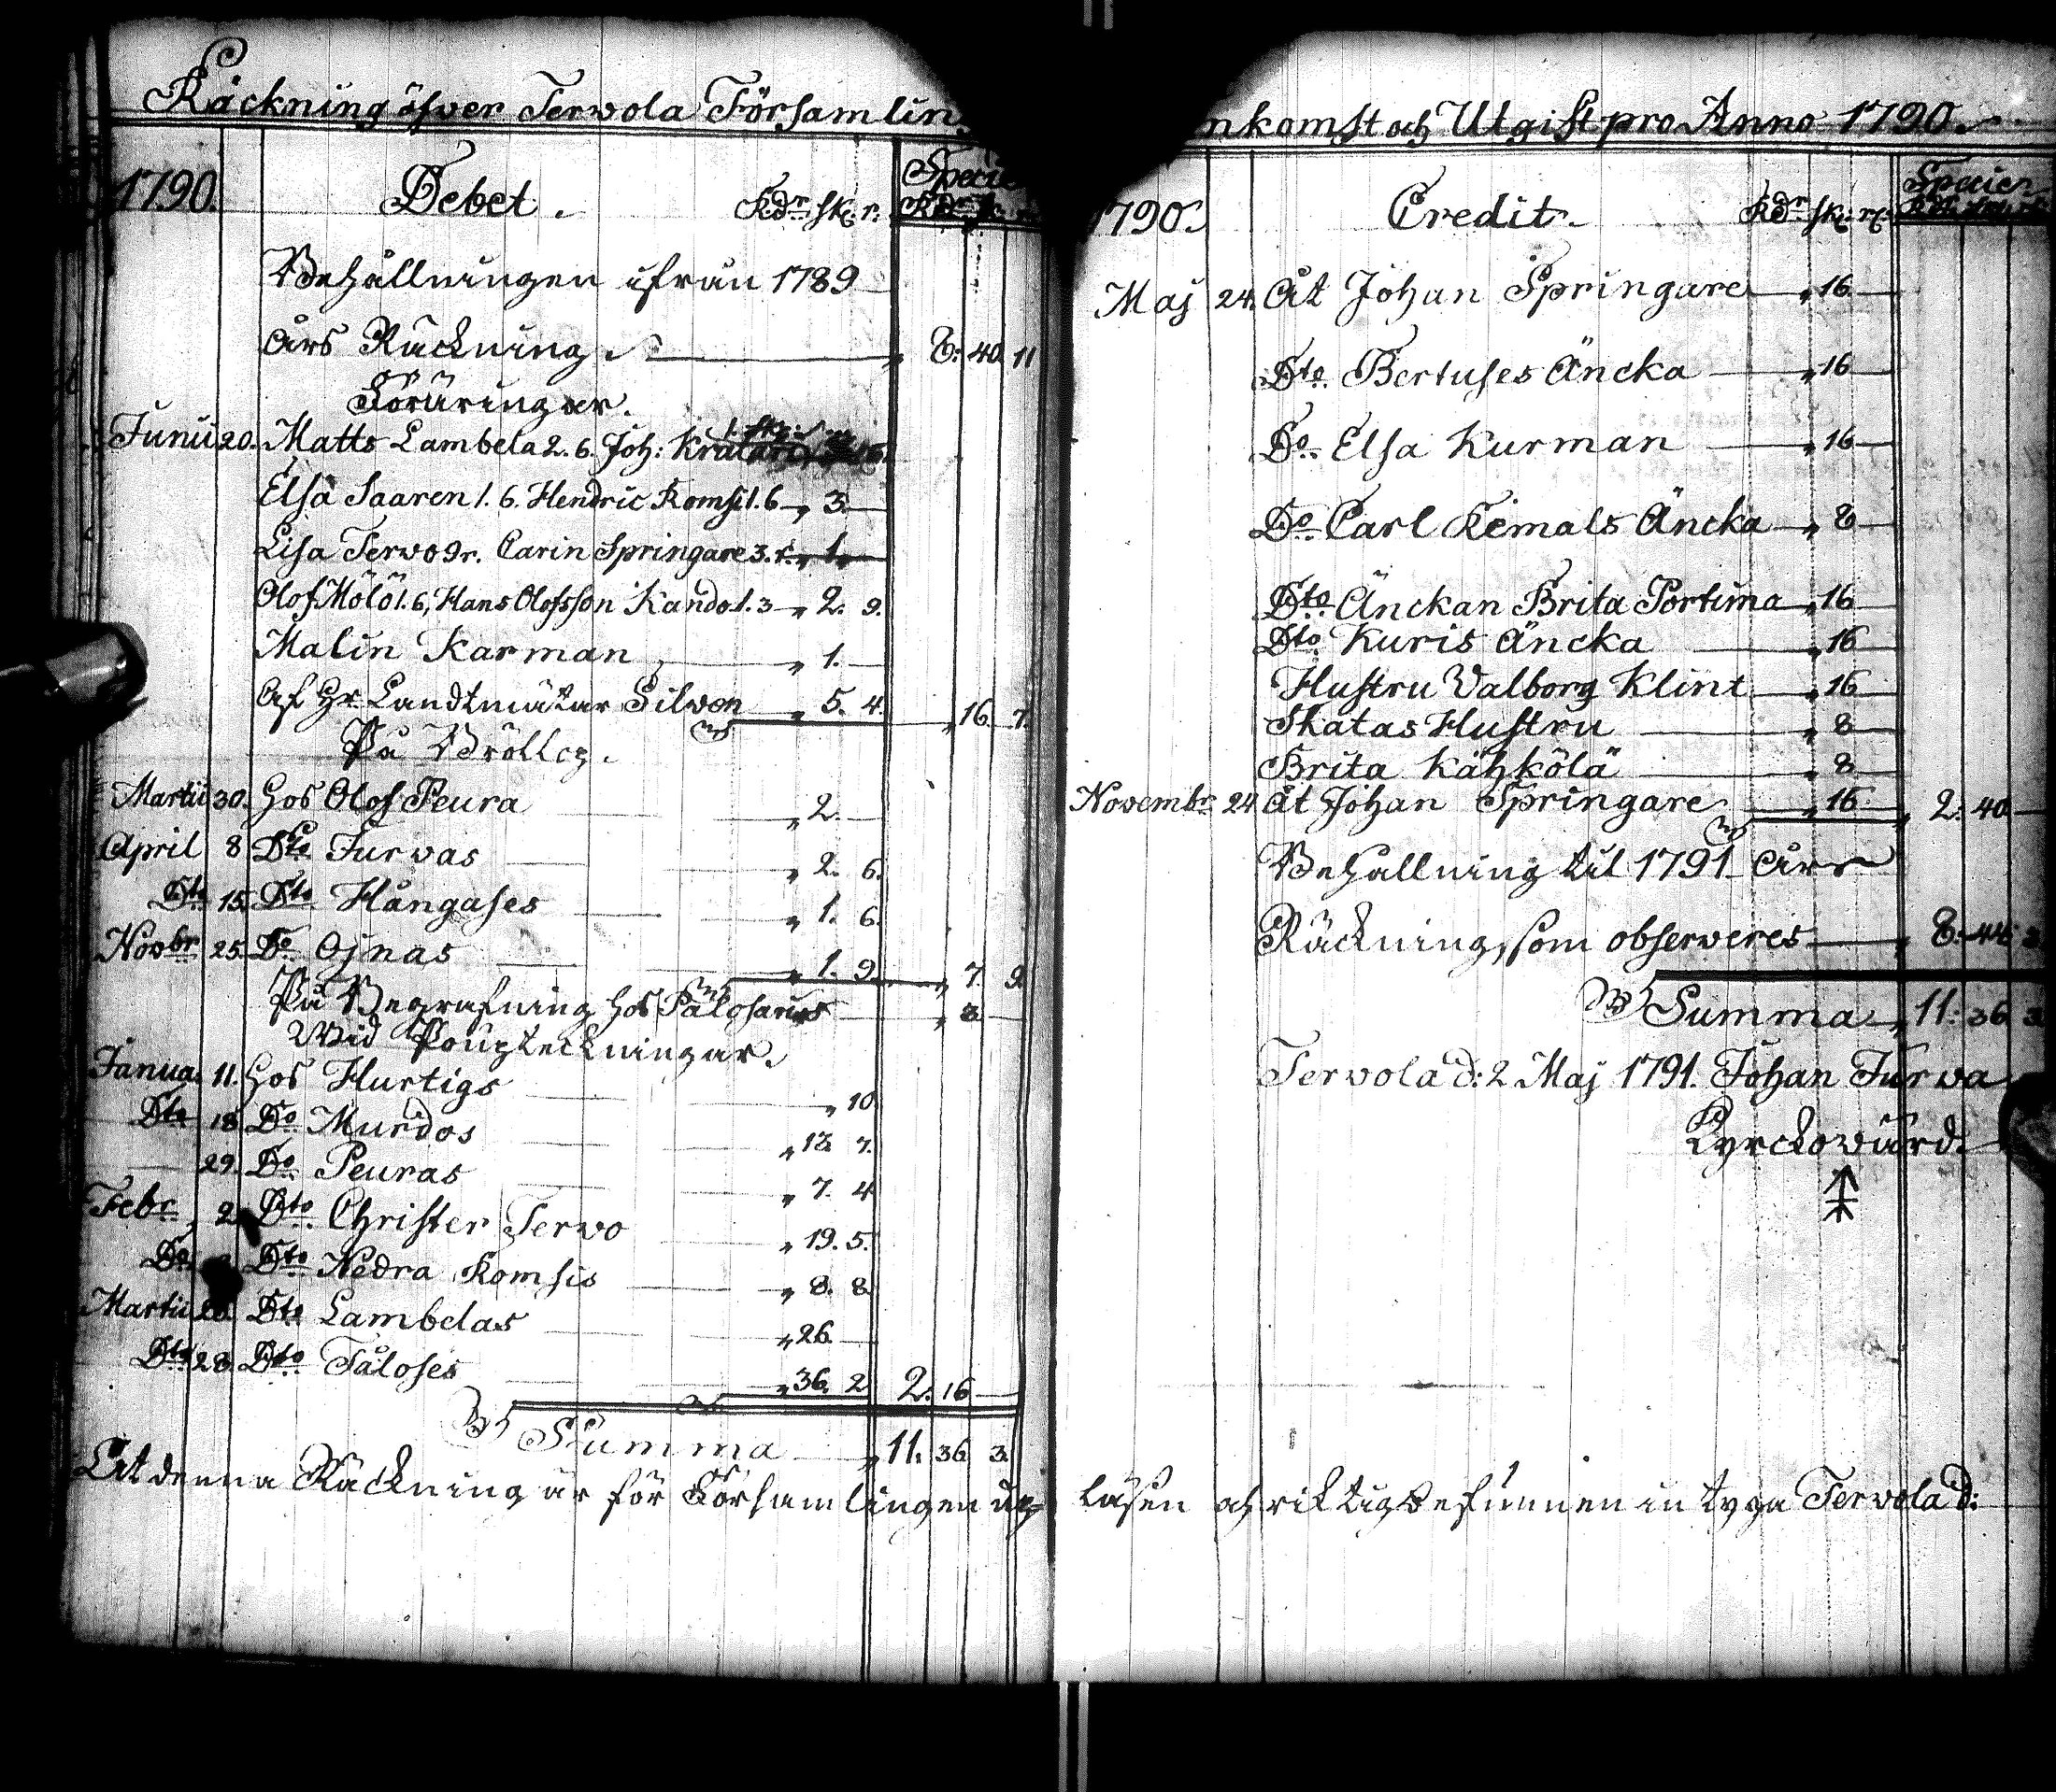 Räckning öfver Tervola Församlin
1790. Debet. Rdr sk: r. Specie
Behållningen ifrån 1789
års Räckning 8: 40. 11
Föräringar.
Junii 20. Matts Lambela 2. 6. Joh:
Elsa Saaren 1. 6. Hendric Komsi 1. 6 3.
Lisa Tervo 9r. Carin Springare 3. r. 1.
Olof Mölö 1. 6, Hans Olofsson Kando 1. 3 2. 9.
Malin Karman 1.
Af Hr Landtmätar Silwen 5. 4. 16. 7.
På Bröllop.
Martii 30. Hos Olof Peura 2.
April 8 Dto Furvas 2. 6.
Dto 15. Dto Hångases 1. 6.
Novbr 25. Do Ojnas 1. 9. 7. 9
På Begrafning hos Palosaris 8
Wid Poughteckningar.
Janua. 11. Hos Hurtigs 10
Dto 18 Do Murdos 18 7.
29. Do Peuras 7. 4
Febr. 2 Dto Christer Tervo 19. 5.
Do Dto Hedra Komsis 8. 8
Martii Dto Lambelas 26.
Dto 28. Dto Taloses 36. 2 2. 16
Summa 11. 36 3.
At denna Räckning är för Församlingen up
nkomst och Utgift pro Anno 1790.
1790. Credit. Rdr sk: r. Specier
Maj 24. åt Johan Springare 16
Dto Bertuses Äncka 16
Do Elsa Kurman 16
Do Carl Kemals Äncka 8
Dto Änckan Brita Portima 16
Dto Kuris Äncka 16
Hustru Valborg Klint 16
Skatas Hustru 8
Brita Kähkölä 8
Novembr 24 åt Johan Springare 16 2: 40
Behållning til 1791 års
Räckning, som observeres 8: 44 3
Summa 11: 36 3
Tervola d: 2 Maj 1791. Johan Furva
Kyrckovärd.
läsen och riktig befunnen intyga Tervola d: